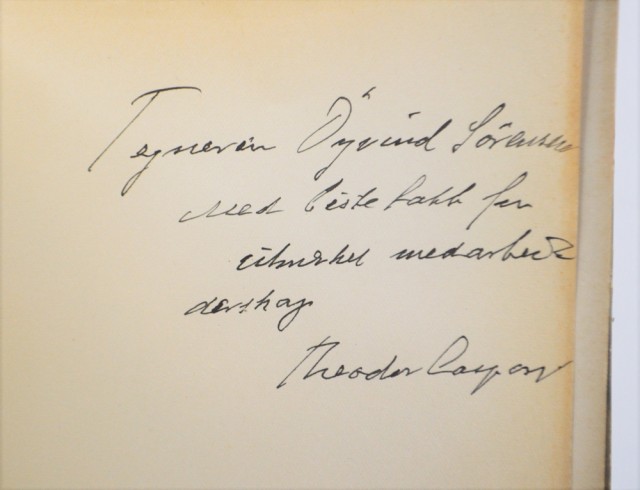 Tegneren Öyvind Sörensen
med beste takk for
utmerket medarbei-
derskap
Theodor Caspari